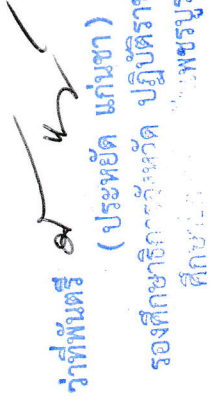 ว่าที่พันตรี
(ประหยัด แก่นชา)
รองศึกษาธิการจังหวัด ปฏิบัติราช
ศึกษา เพชรบูร